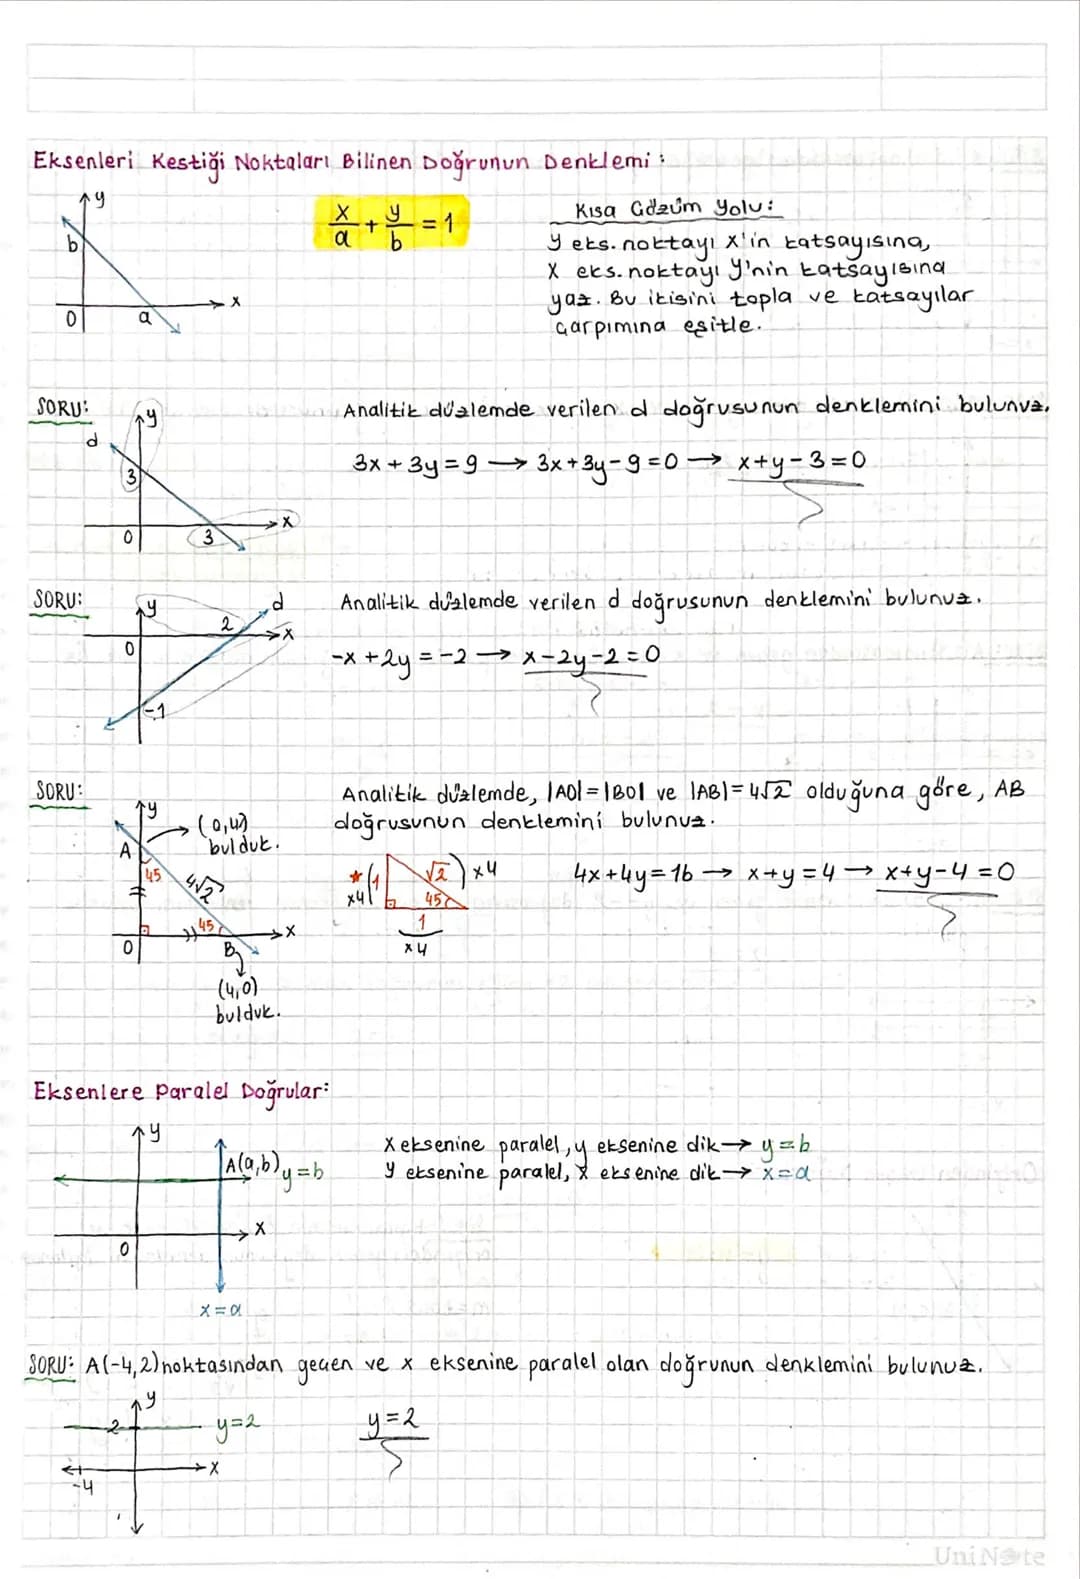 Eksenleri Kestiği Noktaları Bilinen Doğrunun Denklemi:
y
b
0
a
x
x/a + y/b = 1
Kısa Çözüm Yolu:
y eks. noktayı x'in katsayısına,
x eks. noktayı y'nin katsayısına
yaz. Bu ikisini topla ve katsayılar
çarpımına eşitle.
SORU:
Analitik düzlemde verilen d doğrusunun denklemini bulunuz.
d
y
3
0
3
x
3x + 3y = 9 → 3x + 3y - 9 = 0 → x + y - 3 = 0
SORU:
Analitik düzlemde verilen d doğrusunun denklemini bulunuz.
y
d
2
x
0
-1
-x + 2y = -2 → x - 2y - 2 = 0
SORU:
Analitik düzlemde, |AO| = |BO| ve |AB| = 4√2 olduğuna göre, AB
doğrusunun denklemini bulunuz.
y
(0,4)
bulduk.
A
45
4√2
45
x
0
B
(4,0)
bulduk.
★
1
x4
√2
x4
45
1
x4
4x + 4y = 16 → x + y = 4 → x + y - 4 = 0
Eksenlere Paralel Doğrular:
y
A(a,b)
y = b
x
0
x = a
x eksenine paralel, y eksenine dik → y = b
y eksenine paralel, x eksenine dik → x = a
SORU: A(-4,2) noktasından geçen ve x eksenine paralel olan doğrunun denklemini bulunuz.
y
2
y = 2
x
-4
y = 2
UniNote